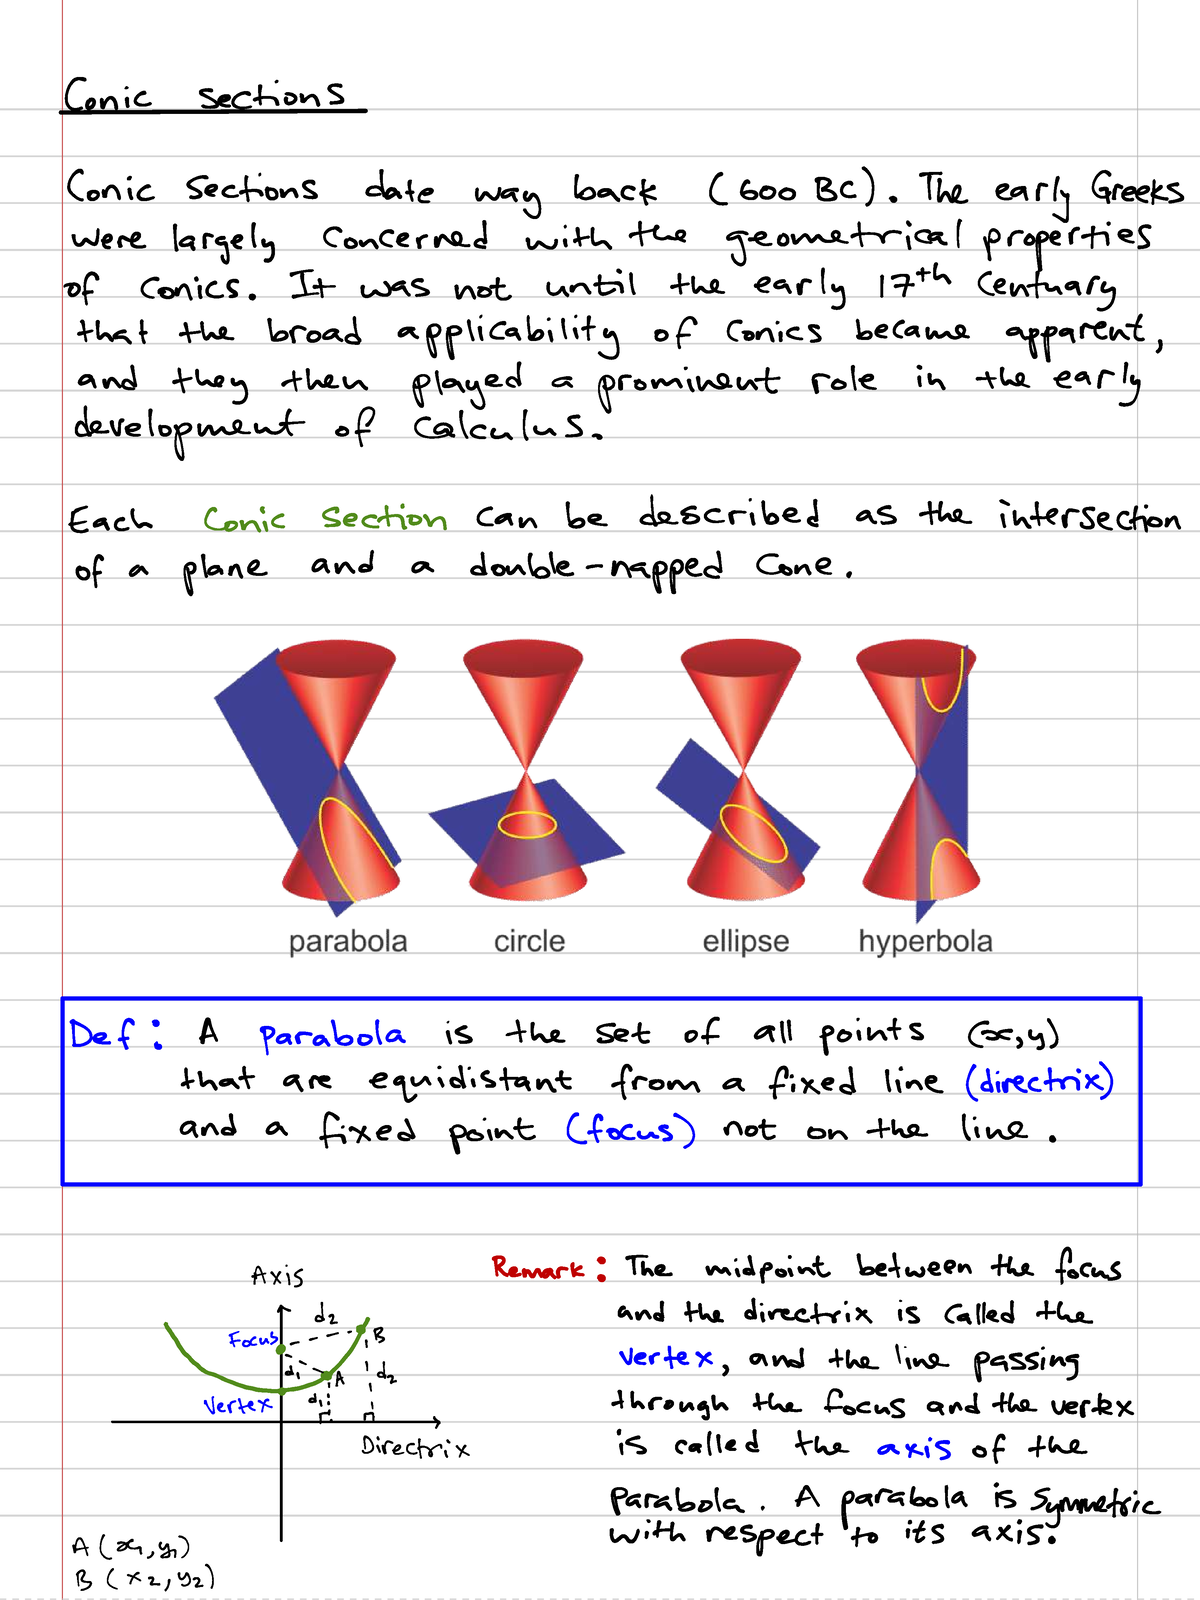 Conic sections
Conic Sections date way back (600 BC). The early Greeks
were largely concerned with the geometrical properties
of conics. It was not until the early 17th Centuary
that the broad applicability of conics became apparent,
and they then played a prominent role in the early
development of Calculus.
Each Conic Section can be described as the intersection
of a plane and a double-napped Cone.
parabola circle ellipse hyperbola
Def: A parabola is the set of all points (x,y)
that are equidistant from a fixed line (directrix)
and a fixed point (focus) not on the line.
Axis
d2
Focus
B
d1
A
d2
Vertex
d1
Directrix
A (x1, y1)
B (x2, y2)
Remark: The midpoint between the focus
and the directrix is called the
vertex, and the line passing
through the focus and the vertex
is called the axis of the
parabola. A parabola is symmetric
with respect to its axis.